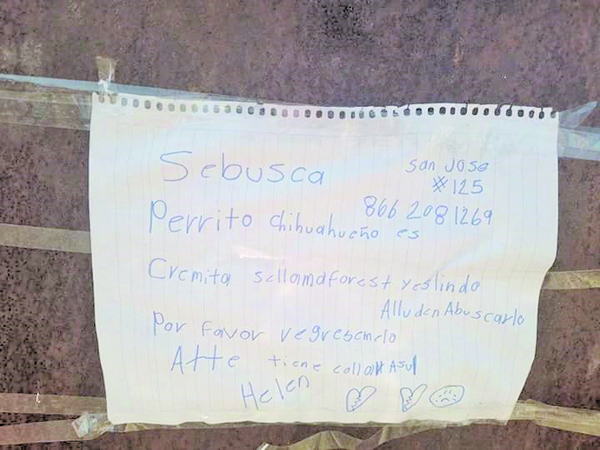 Sebusca
San Jose
#125
866 2081269
Perrito chihuahueño es
Cremita sellamaforest yeslindo
AlludenAbuscarlo
Por Favor regresemelo
Atte tiene collar Asul
Helen